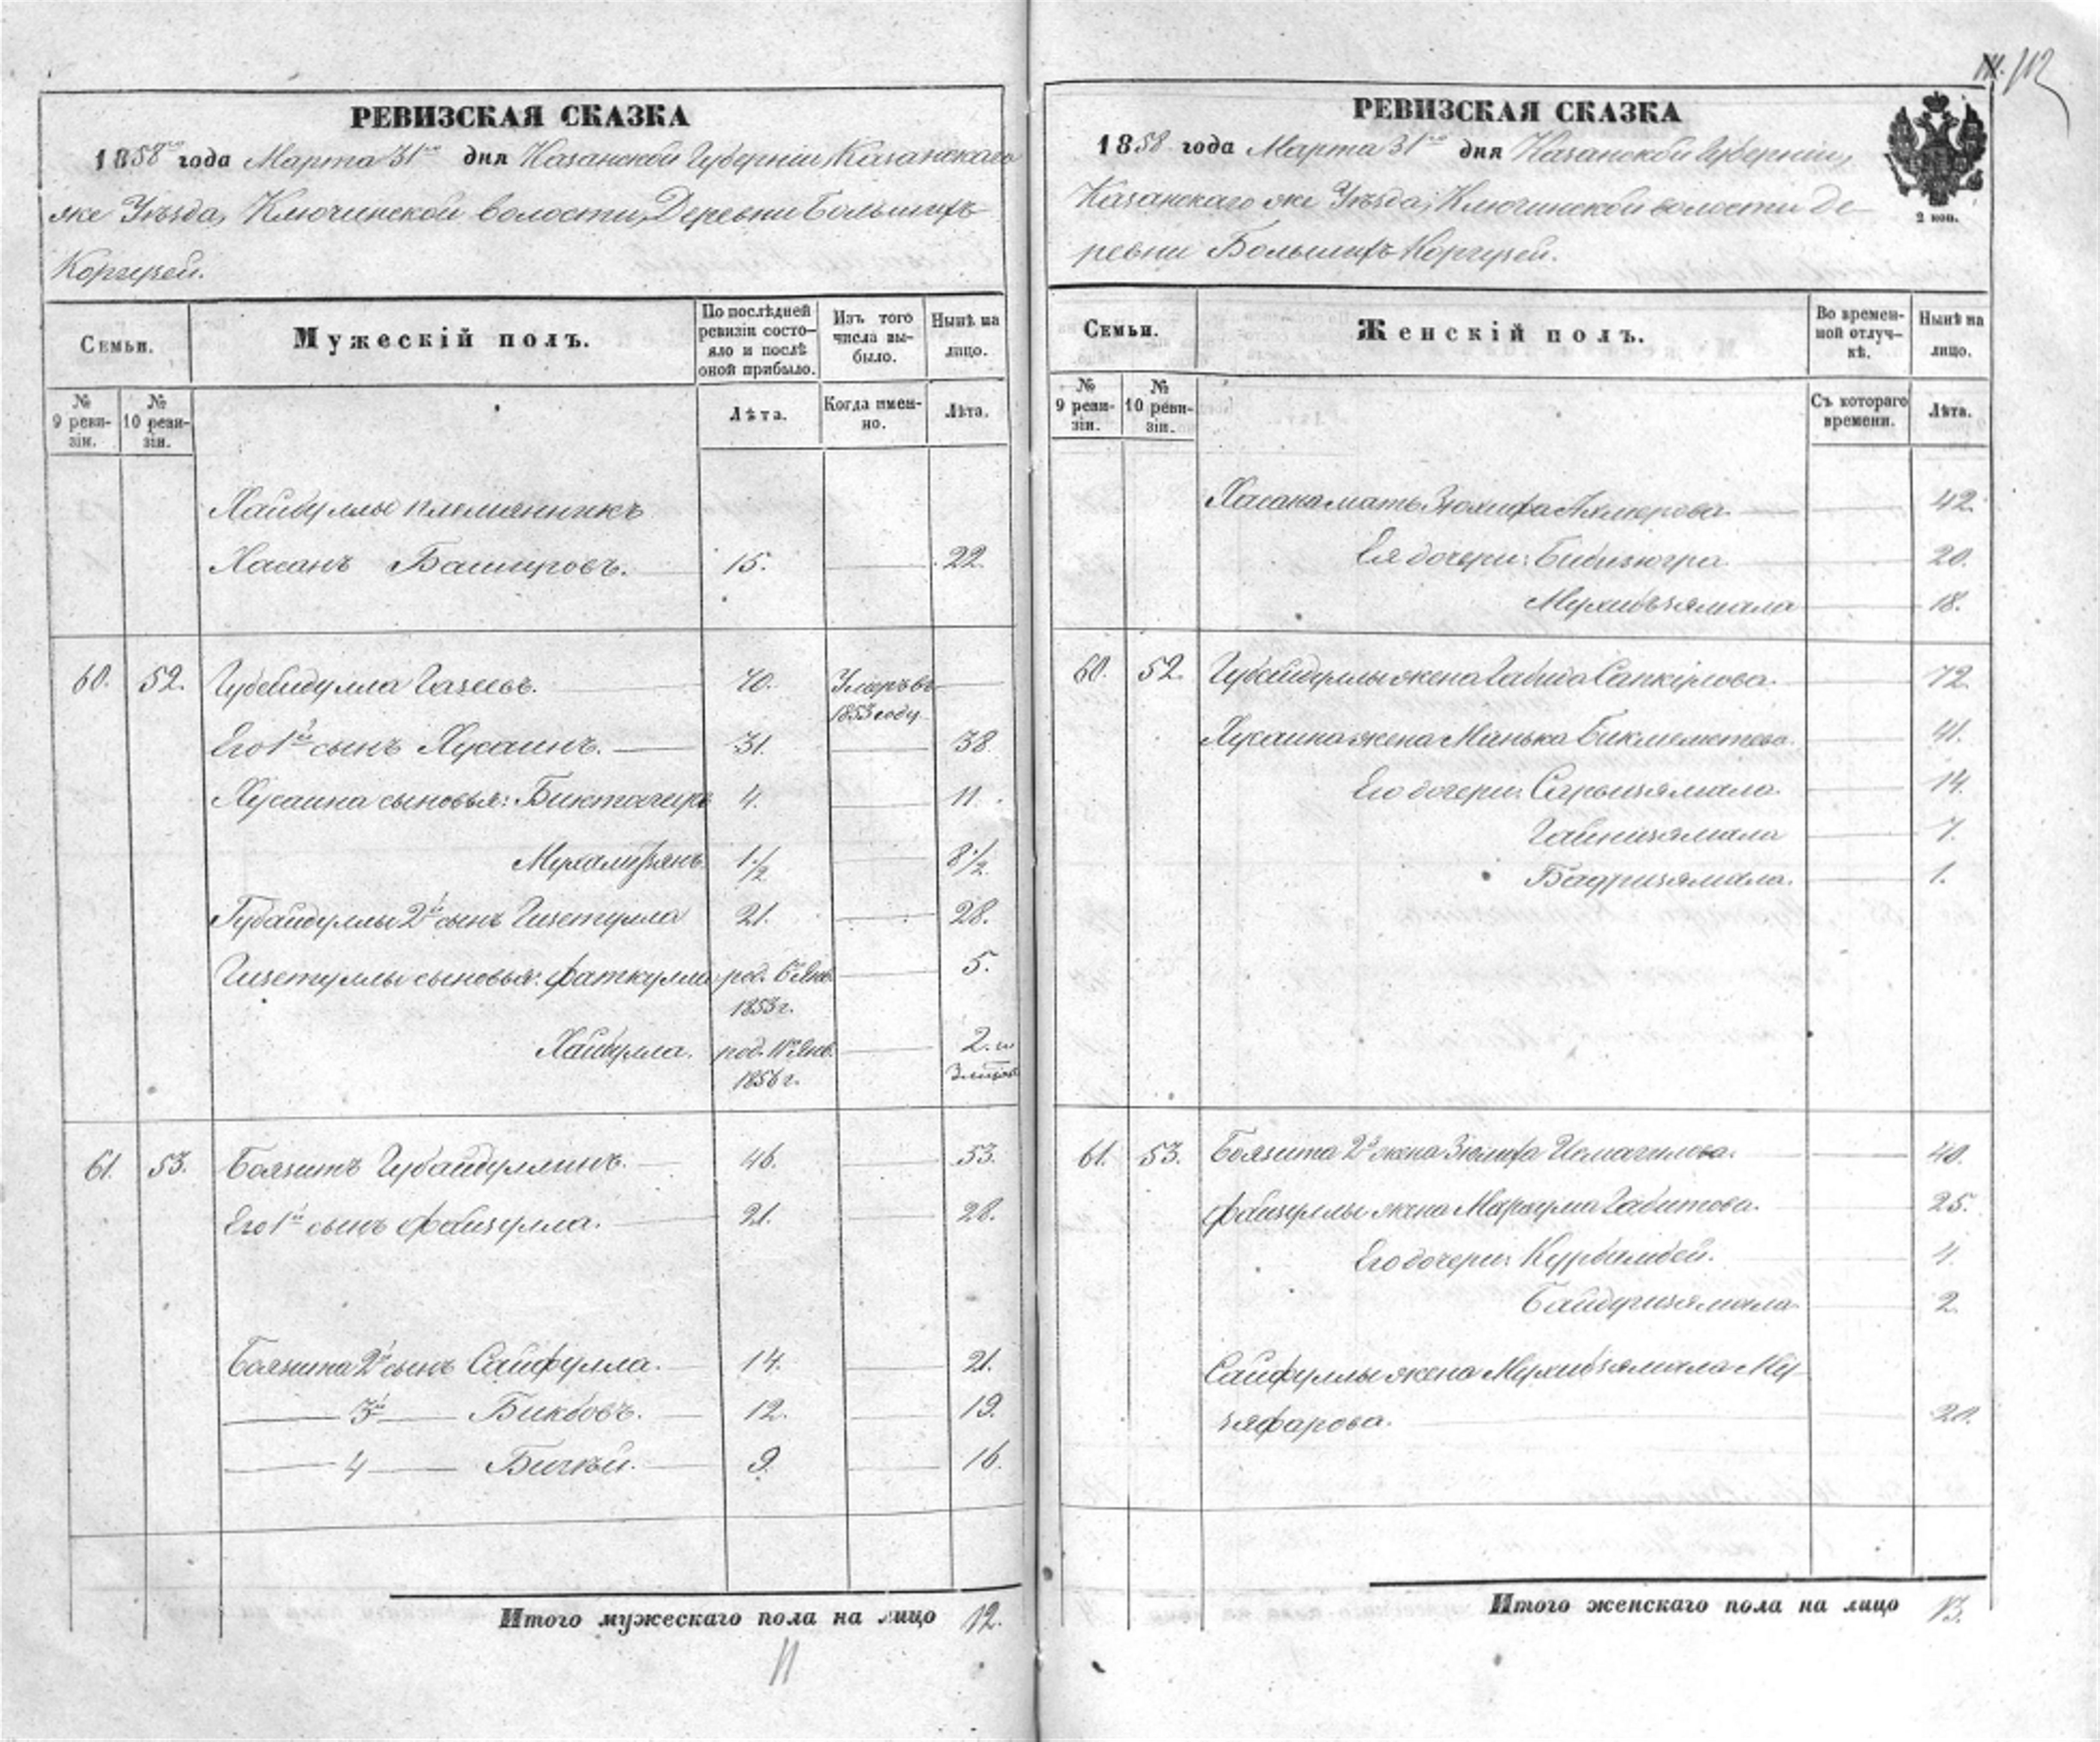 РЕВИЗСКАЯ СКАЗКА
1858го года Марта 31го дня Казанской Губерніи, Казанскаго
же Уѣзда, Ключинской волости, Деревни Большихъ
Коргузей.
Семьи.
Мужескій полъ.
По послѣдней ревизіи состояло и послѣ оной прибыло.
Изъ того числа выбыло.
Нынѣ на лицо.
№ 9 ревизіи.
№ 10 ревизіи.
Лѣта.
Когда именно.
Лѣта.
Хайбуллы племянникъ
Хасанъ Башировъ. 15. 22.
60. 52. Губейдулла Газеевъ. 70. Умеръ въ 1853 году
Его 1й сынъ Хусаинъ. 31. 38.
Хусаина сыновья: Биктагиръ 4. 11.
Мухамизянъ. 1 1/2 8 1/2
Губайдуллы 2й сынъ Гизетулла 21. 28.
Гизетуллы сыновья: Фаткулла род. Янв. 1853 г. 5.
Хайбулла. род. Янв. 1856 г. 2. и
61. 53. Боязитъ Губайдуллинъ. 46. 53.
Его 1й сынъ Файзулла. 21. 28.
Боязита 2й сынъ Сайфулла. 14. 21.
3й Бикбовъ. 12. 19.
4 9. 16.
Итого мужескаго пола на лицо 12.
11
112
РЕВИЗСКАЯ СКАЗКА
1858 года Марта 31го дня Казанской Губерніи,
Казанскаго же Уѣзда, Ключинской волости Де-
ревни Большихъ Коргузей.
2 коп.
Семьи.
Женскій полъ.
Во временной отлучкѣ.
Нынѣ на лицо.
№ 9 ревизіи.
№ 10 ревизіи.
Съ котораго времени.
Лѣта.
Хасана мать Зюлифа 42.
Ея дочери: Бибизюгра 20.
Мухибзямала 18.
60. 52. Губейдуллы жена Габида 72.
Хусаина жена Бикмеметева. 41.
Его дочери: Сарызямала 14.
Гайнизямала 7.
Бадризямала. 1.
61. 53. Боязита 2я жена Зюлифа Исмагилова. 40.
Файзуллы жена Габитова. 25.
Его дочери: Курбамбей. 4.
Байдеризямала 2.
Сайфуллы жена Мухибзямала Му-
зяфарова. 20.
Итого женскаго пола на лицо 13.